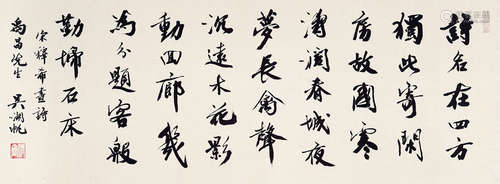 詩名在四方
獨此寄閒
房故國寒
潮闊春城夜
夢長禽聲
沉遠木花影
動回廊幾
為分題客殷
勤埽石床
宋釋希晝詩
禹昌先生 吳湖帆